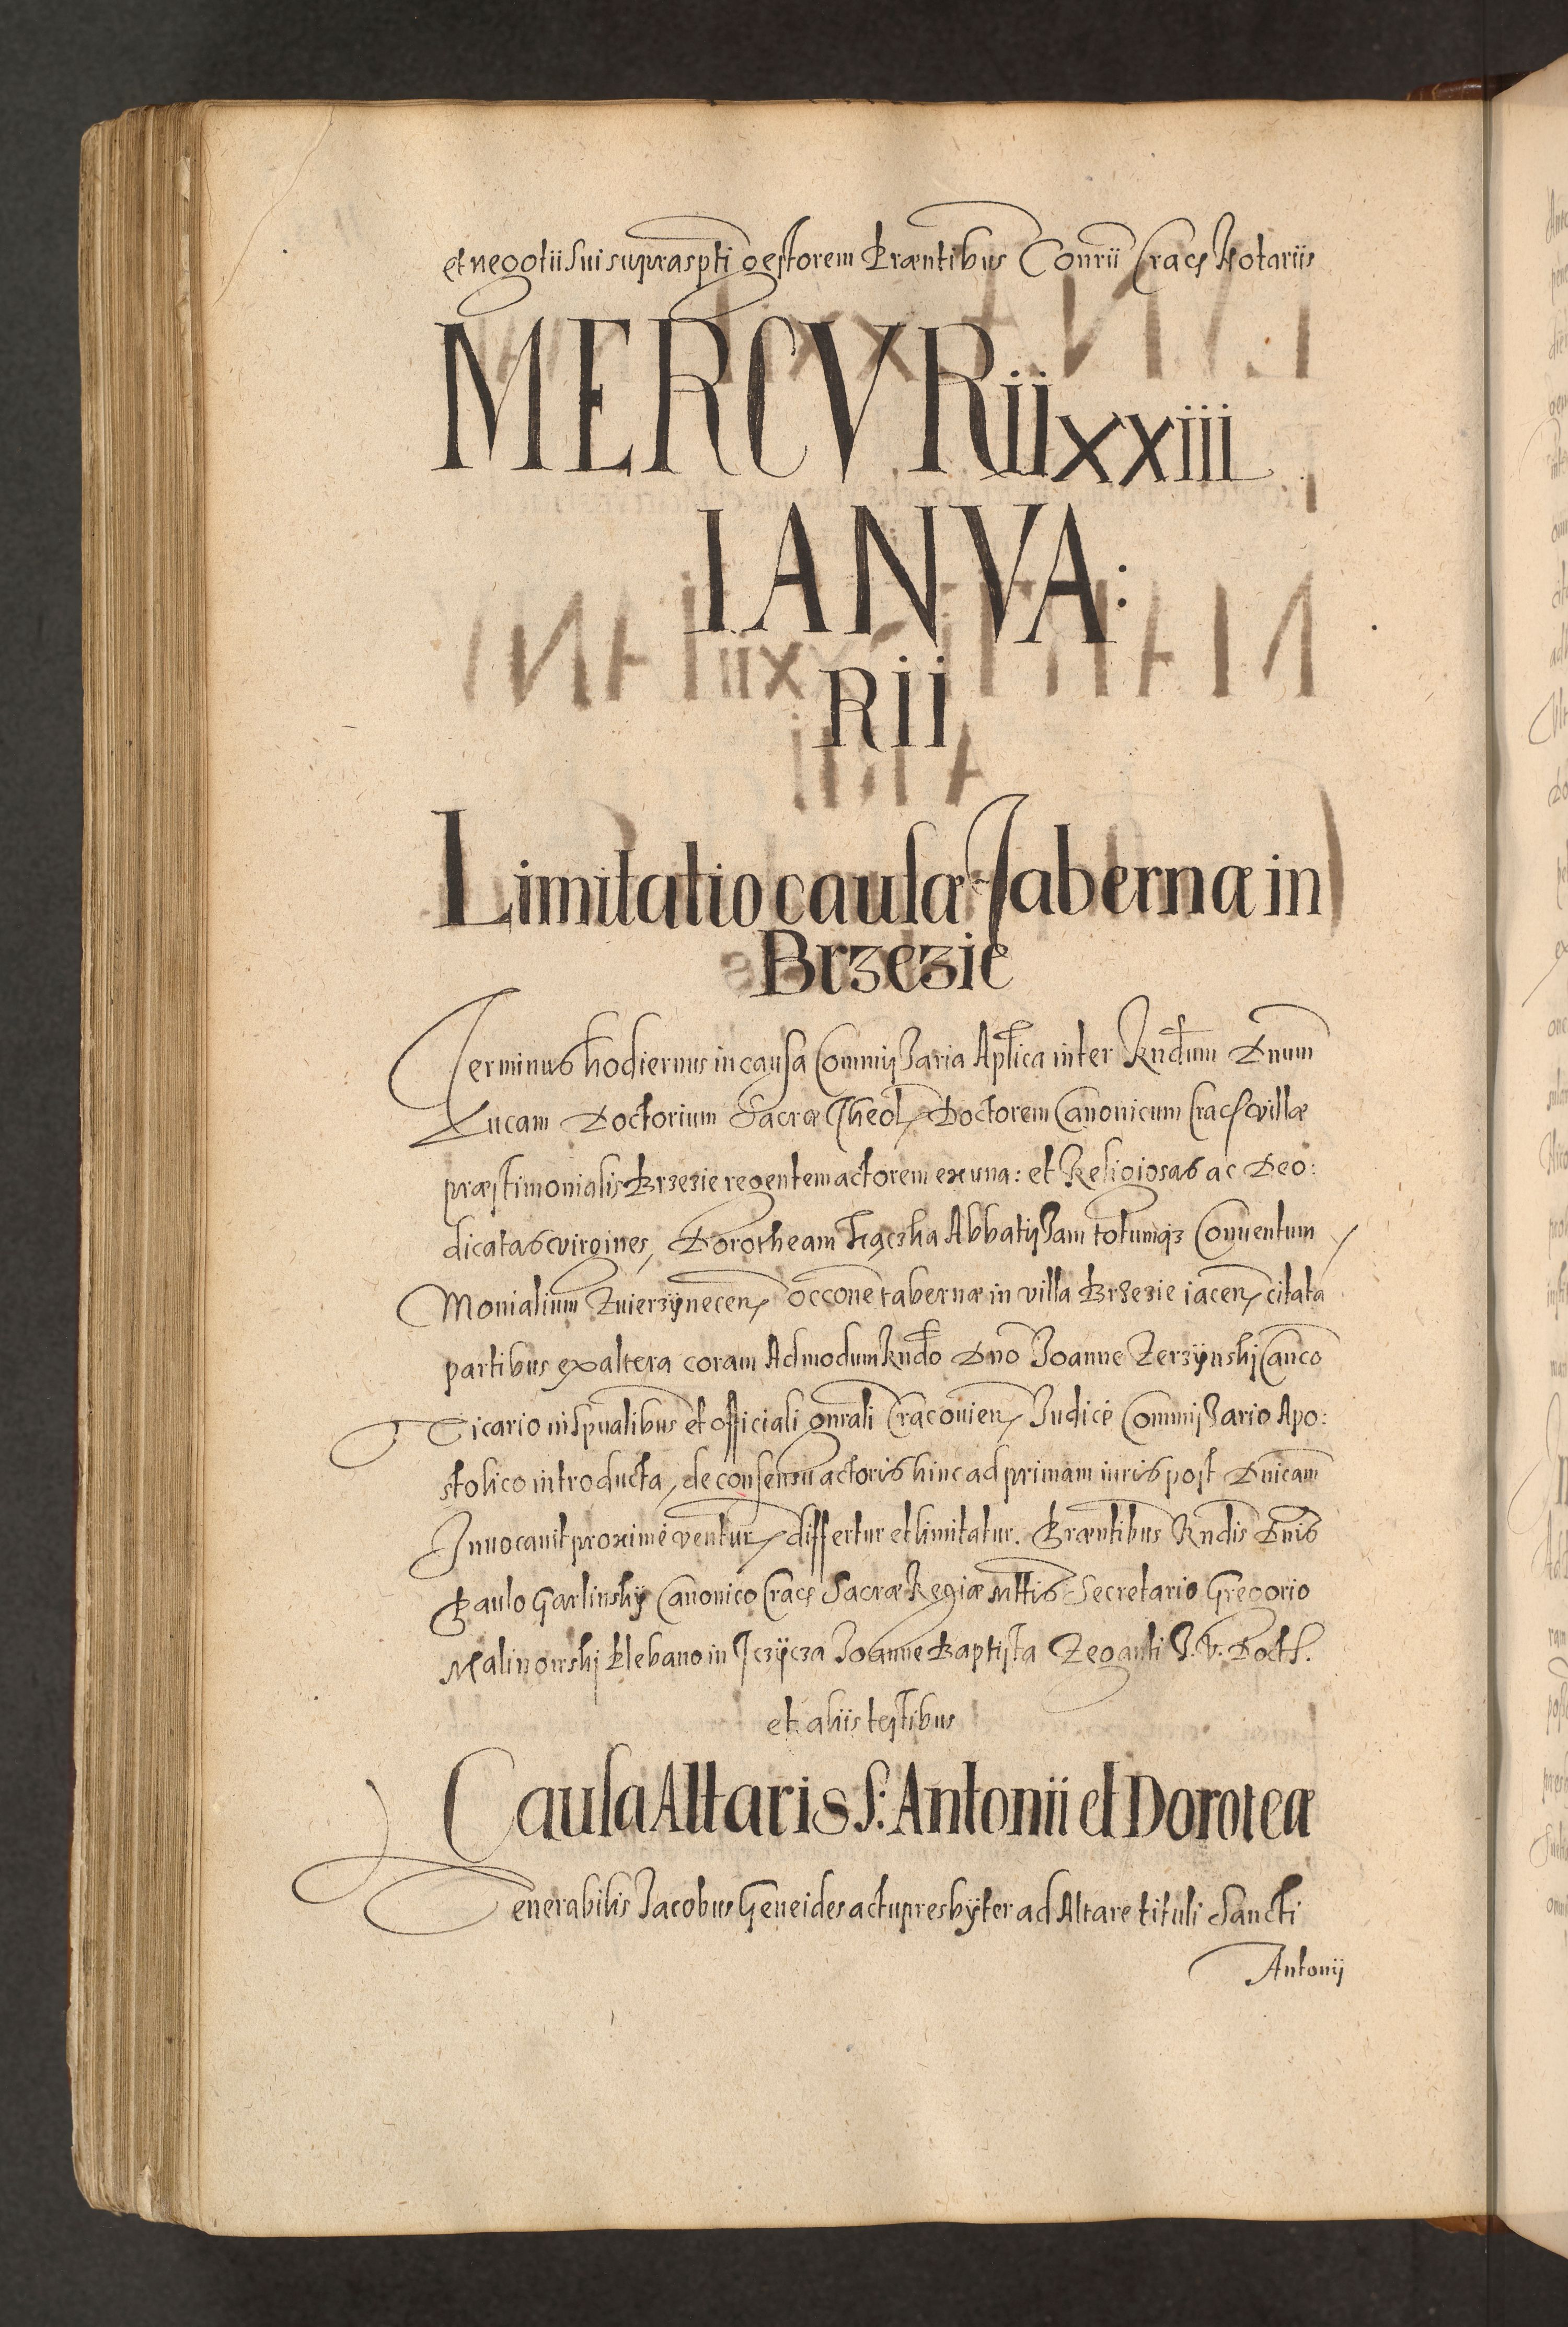 et negotii sui supraspti gestorem Præntibus Conrii Crace Notariis
MERCVRii xxiii
IANVA:
Rii
Limitatio causæ Tabernæ in
Brzezie
Terminus hodiernus in causa Commissaria Aplica inter Rndum Dnum
Lucam Doctorium Sacræ Theol, Doctorem Canonicum Crac villæ
præstimonialis Brzezie regentem actorem ex una: et Religiosas ac Deo:
dicatas virgines, Dorotheam Abbatissam totumqz Conuentum
Monialium Zuierzÿnecen, occone tabernæ in villa Brzezie iacen, citata
partibus ex altera coram Admodum Rndo Dno Joanne Zerzÿnski Canco
Vicario in spualibus et officiali gnrali Cracouien, Judice Commissario Apo:
stolico introducta, de consensu actoris hinc ad primam iuris post Dnicam
Inuocauit proxime ventur, differtur et limitatur. Præntibus Rndis Dnis
Paulo Garlinskÿ Canonico Crace Sacræ Regiæ Mttis Secretario Gregorio
Malinowski Plebano in Joanne Baptista Zeganti J. V. Doct.
et aliis testibus
Causa Altaris S: Antonii et Doroteæ
Venerabilis Jacobus Geneides actu presbÿter ad Altare tituli Sancti
Antonij